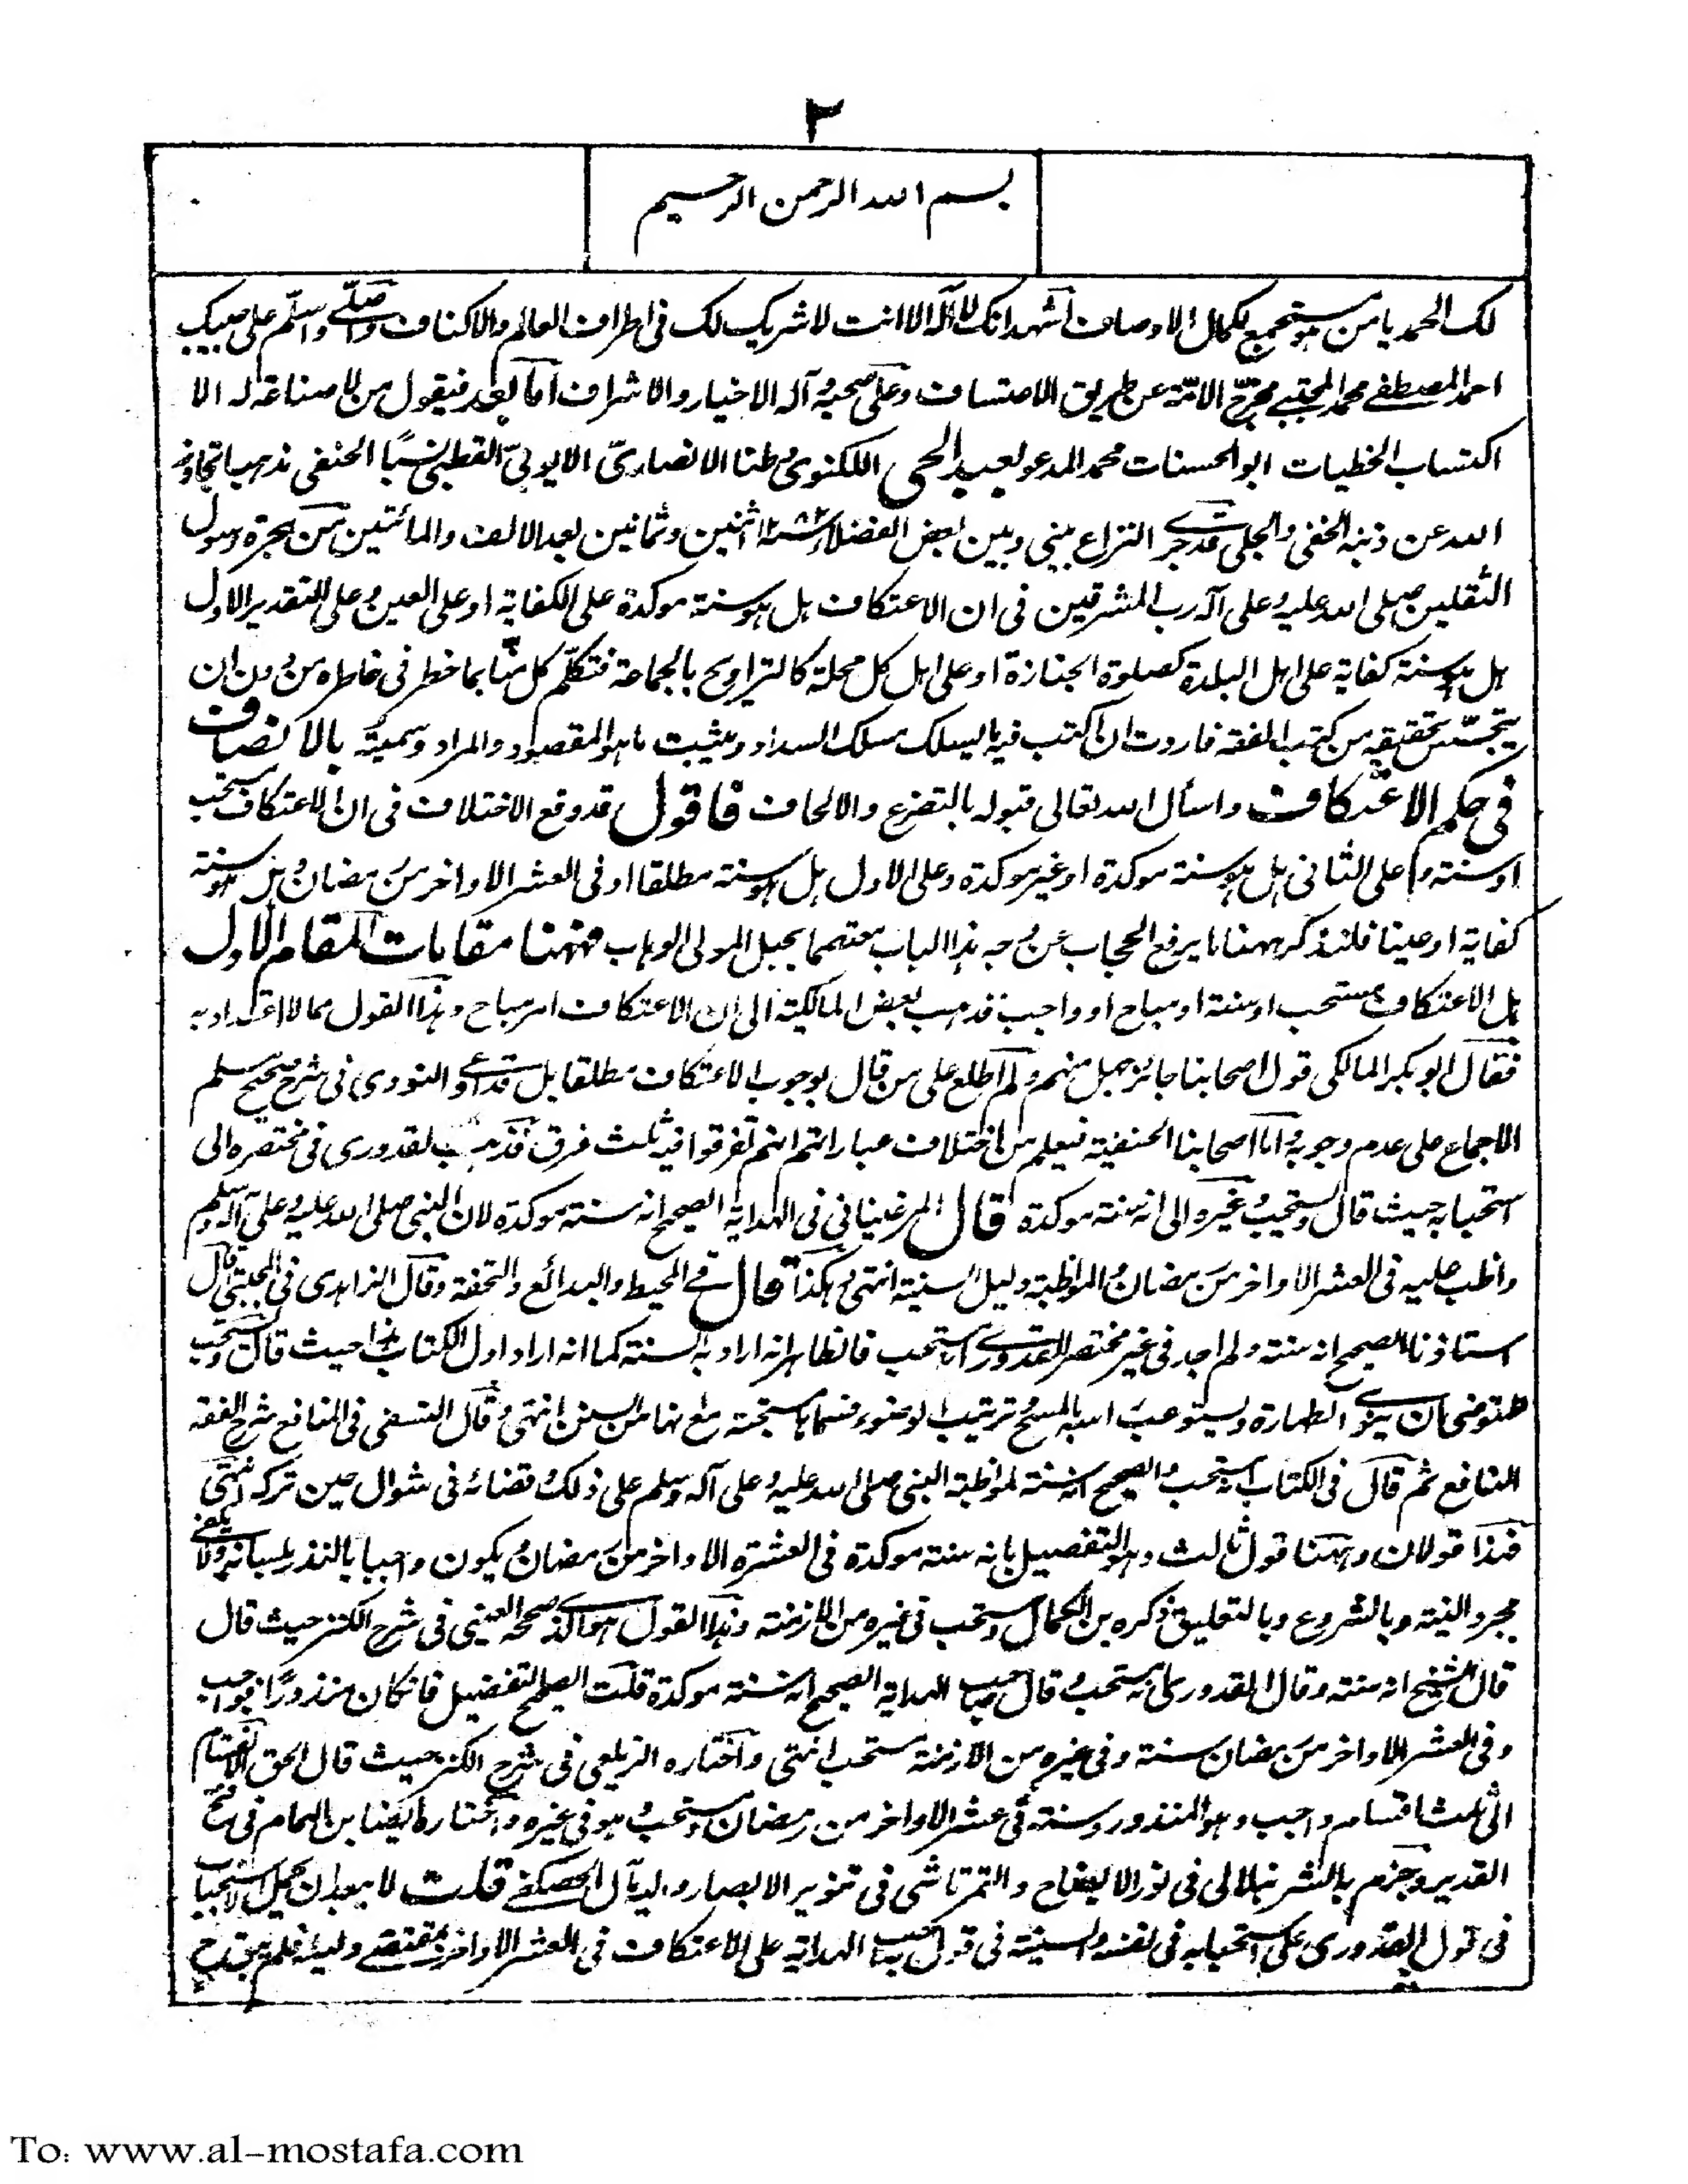 ٢
بسم الله الرحمن الرحيم
لك الحمد يا من هو مستجمع لكمال الاوصاف اشهد انك لا اله الا انت لا شريك لك فى اطراف العالم والاكناف واصلى واسلم على حبيبك
احمد المصطفى محمد المجتبى مخرج الامة عن طريق الاعتساف وعلى صحبه وآله الاخيار والاشراف اما بعد فيقول من لا صناعة له الا
اكتساب الخطيات ابو الحسنات محمد المدعو بعبد الحى اللكنوى وطنا الانصارى الايوبى القطبى نسبا الحنفى مذهبا تجاوز
الله عن ذنبه الخفى والجلى قد جرى النزاع بينى وبين بعض الفضلاء سنة ١٢٨٢ اثنين وثمانين بعد الالف والمائتين من هجرة رسول
الثقلين صلى الله عليه وعلى آله رب المشرقين فى ان الاعتكاف هل هو سنة موكدة على الكفاية او على العين وعلى التقدير الاول
هل هو سنة كفاية على اهل البلدة كصلوة الجنازة او على اهل كل محلة كالتراويح بالجماعة فتكلم كل منا بما خطر فى خاطره من دون ان
يتجسس تحقيقه من كتب الفقه فاردت ان اكتب فيه ما يسلك مسلك السداد ويثبت ما هو المقصود والمراد وسميته بالانصاف
فى حكم الاعتكاف واسأل الله تعالى قبوله بالتضرع والالحاف فاقول قد وقع الاختلاف فى ان الاعتكاف مستحب
او سنة وعلى الثانى هل هو سنة موكدة او غير موكدة وعلى الاول هل هو سنة مطلقا او فى العشر الاواخر من رمضان وهل هو سنة
كفاية او عينا فلنذكر ههنا ما يرفع الحجاب عن وجه هذا الباب معتصما بحبل المولى الوهاب فههنا مقامات المقام الاول
هل الاعتكاف مستحب او سنة او مباح او واجب فذهب بعض المالكية الى ان الاعتكاف امر مباح وهذا القول مما لا اعتداد به
فقال ابو بكر المالكى قول اصحابنا جائز جهل منهم ولم اطلع على من قال بوجوب الاعتكاف مطلقا بل قد ادعى النووى فى شرح صحيح مسلم
الاجماع على عدم وجوبه واما اصحابنا الحنفية فيعلم من اختلاف عباراتهم انهم تفرقوا فيه ثلث فرق فذهب القدورى فى مختصره الى
استحبابه حيث قال ويستحب وغيره الى انه سنة موكدة قال المرغينانى فى الهداية الصحيح انه سنة موكدة لان النبى صلى الله عليه وعلى آله وسلم
واظب عليه فى العشر الاواخر من رمضان والمواظبة دليل السنية انتهى وهكذا قال فى المحيط والبدائع والتحفة وقال الزاهدى فى المجتبى قال
استاذنا الصحيح انه سنة ولم اجد فى غير مختصر القدورى انه مستحب فالظاهر انه اراد به السنة كما انه اراد اول الكتاب هذا حيث قال ويستحب
للمتوضى ان ينوى الطهارة ويستوعب راسه بالمسح ويرتب الوضوء فسماها مستحبة مع انها من السنن انتهى وقال النسفى فى المنافع شرح الفقه
النافع ثم قال فى الكتاب انه يستحب والصحيح انه سنة لمواظبة النبى صلى الله عليه وعلى آله وسلم على ذلك وقضائه فى شوال حين تركه انتهى
فهذا قولان وههنا قول ثالث وهو التفصيل بانه سنة موكدة فى العشرة الاواخر من رمضان ويكون واجبا بالنذر بلسانه ولا يكفى
مجرد النية وبالشروع وبالتعليق ذكره ابن الكمال ومستحب فى غيره من الازمنة وهذا القول هو الذى صححه العينى فى شرح الكنز حيث قال
قال الشيخ انه سنة وقال القدورى انه مستحب وقال صاحب الهداية الصحيح انه سنة موكدة قلت الصحيح التفصيل فان كان منذورا فواجب
وفى العشر الاواخر من رمضان سنة وفى غيره من الازمنة مستحب انتهى واختاره الزيلعى فى شرح الكنز حيث قال الحق الانقسام
الى ثلث اقسام واجب وهو المنذور وسنة فى عشر الاواخر من رمضان ومستحب هو فى غيره واختاره ايضا ابن الهمام فى فتح
القدير وجزم به الشرنبلالى فى نور الايضاح والتمرتاشى فى تنوير الابصار واليه مال الحصكفى قلت لا يبعد ان يحمل الاستحباب
فى قول القدورى على استحبابه فى نفسه والسنية فى قول صاحب الهداية على الاعتكاف فى العشر الاواخر بمقتضى دليله فلم يبق
To: www.al-mostafa.com